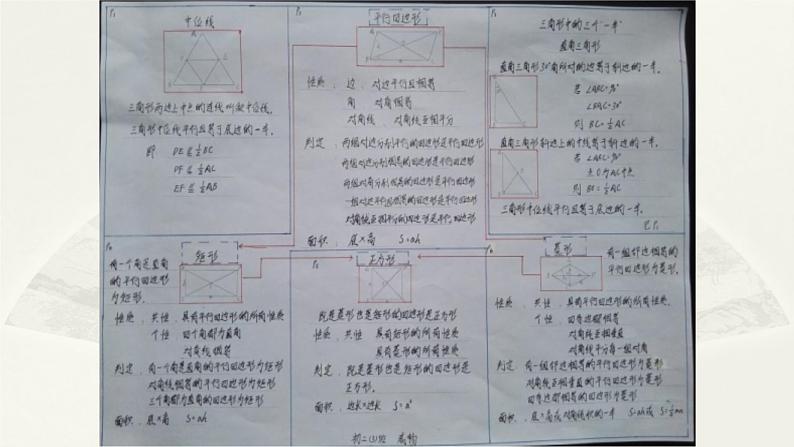 P1
中位线
三角形两边上中点的连线叫做中位线。
三角形中位线平行且等于底边的一半。
即 DE ∥= ½BC
DF ∥= ½AC
EF ∥= ½AB
平行四边形
性质: 边、对边平行且相等
角 对角相等
对角线、对角线互相平分
判定: 两组对边分别平行的四边形是平行四边形
两组对边分别相等的四边形是平行四边形
两组对角分别相等的四边形是平行四边形
一组对边平行且相等的四边形是平行四边形
对角线互相平分的四边形是平行四边形
面积: 底×高 S=ah
三角形中的三个"一半"
直角三角形
直角三角形30°角所对的边等于斜边的一半。
若∠ABC=90°
∠BAC=30°
则 BC=½AC
直角三角形斜边上的中线等于斜边的一半。
若∠ABC=90°
点O为AC中点
则
三角形中位线平行且等于底边的一半。
矩形
有一个角是直角
的平行四边形
为矩形。
性质: 共性: 具有平行四边形的所有性质
个性: 四个角都为直角
对角线相等
判定: 有一个角是直角的平行四边形为矩形
对角线相等的平行四边形为矩形
三个角都为直角的四边形为矩形
面积: 底×高 S=ah
正方形
既是菱形也是矩形的四边形是正方形
性质: 共性 具有矩形的所有性质
具有菱形的所有性质
判定: 既是菱形也是矩形的四边形是
正方形。
面积: 边长×边长 S=a²
初二(3)班
菱形
有一组邻边相等的
平行四边形为菱形。
性质: 共性: 具有平行四边形的所有性质。
个性: 四条边都相等
对角线互相垂直
对角线平分每一组对角
判定: 有一组邻边相等的平行四边形为菱形
对角线互相垂直的平行四边形为菱形
四条边都相等的四边形为菱形
面积: 底×高或对角线积的一半 S=ah或 S=½mn